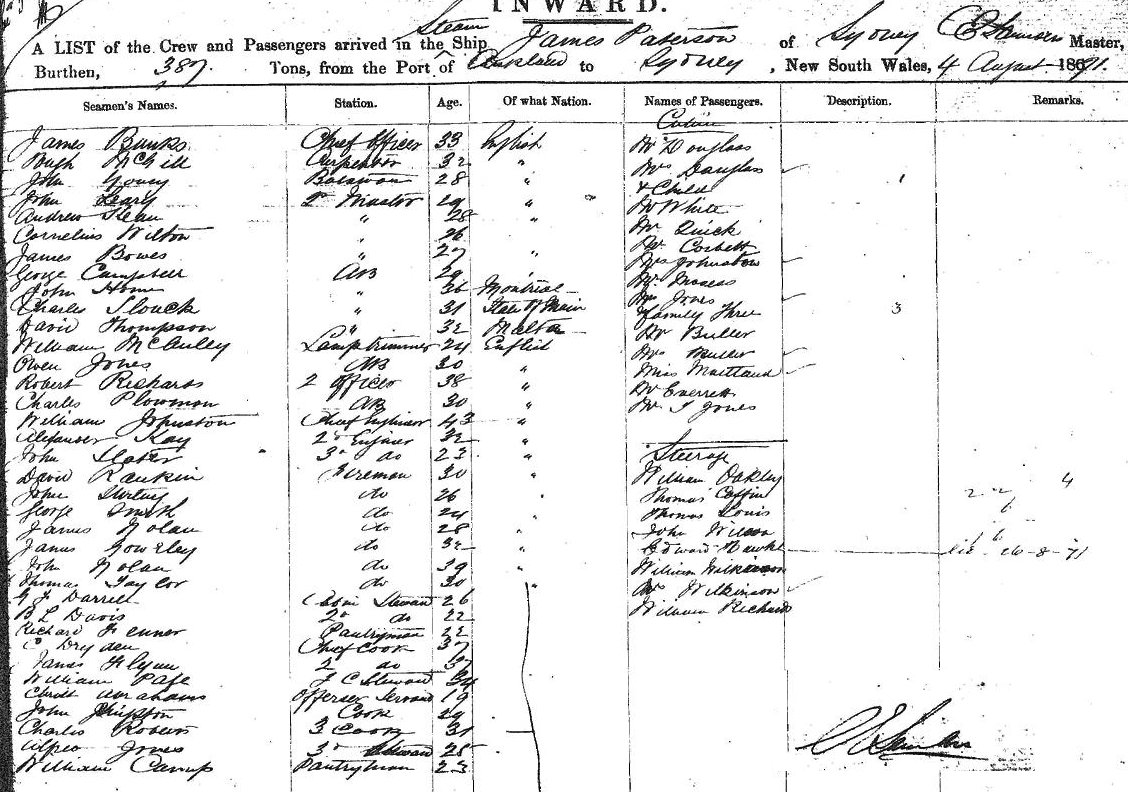 INWARD.
A LIST of the Crew and Passengers arrived in the Steam Ship James Paterson of Sydney Master,
Burthen, 387 Tons, from the Port of Auckland to Sydney, New South Wales, 4 August 1871.
Seamen's Names. Station. Age. Of what Nation. Names of Passengers. Description. Remarks.
Cabin
James Banks Chief Officer 33 English Mr Douglass
Hugh McGill Carpenter 32 " Mrs Douglas
John Boatswain 28 " & Child 1
John Leary 29 " Mr White
Andrew " 28 " Mr Quick
Cornelius Wilton " 26 Mr Corbett
James Bowes " 27 " Mrs Johnston
George Campbell AB 29 " Mr Moses
John Home " 26 Montreal Mrs Jones
Charles Slouck " 31 State of Main Family Three 3
David Thompson " 32 Malta Mr Buller
William McAuley Lamptrimmer 24 English Mrs Buller
Owen Jones AB 30 " Miss Maitland
Robert Richards 2 Officer 38 " Mr Everett
Charles Plowman AB 30 " Mr T Jones
William Johnston Chief Engineer 43 "
Alexander Kay 2d Engineer 32 "
John Slater 3d do 23 " Steerage
David Rankin Fireman 30 " William Oakley 4
John Stirling do 26 " Thomas Coffin
George Smith do 24 " Thomas Louis
James Nolan do 28 " John Wilson
James Gowrley do 32 " Edward Hawke 26-8-71
John Nolan do 39 " William Wilkinson
Thomas Taylor do 30 " Mrs Wilkinson
G J Darrell Cabin Steward 26 William Richard
B L Davis 2d do 22
Richard Fenner Pantryman 22
C Dryden Chief Cook 37
James Flynn 2 do 37
William Page F C Steward 34
Christ Abrahams Officers Servant 19
John Simpson Cook 29
Charles Roberts 3 Cook 31
Alfred Jones 3d Steward 25
William Camp Pantryman 23